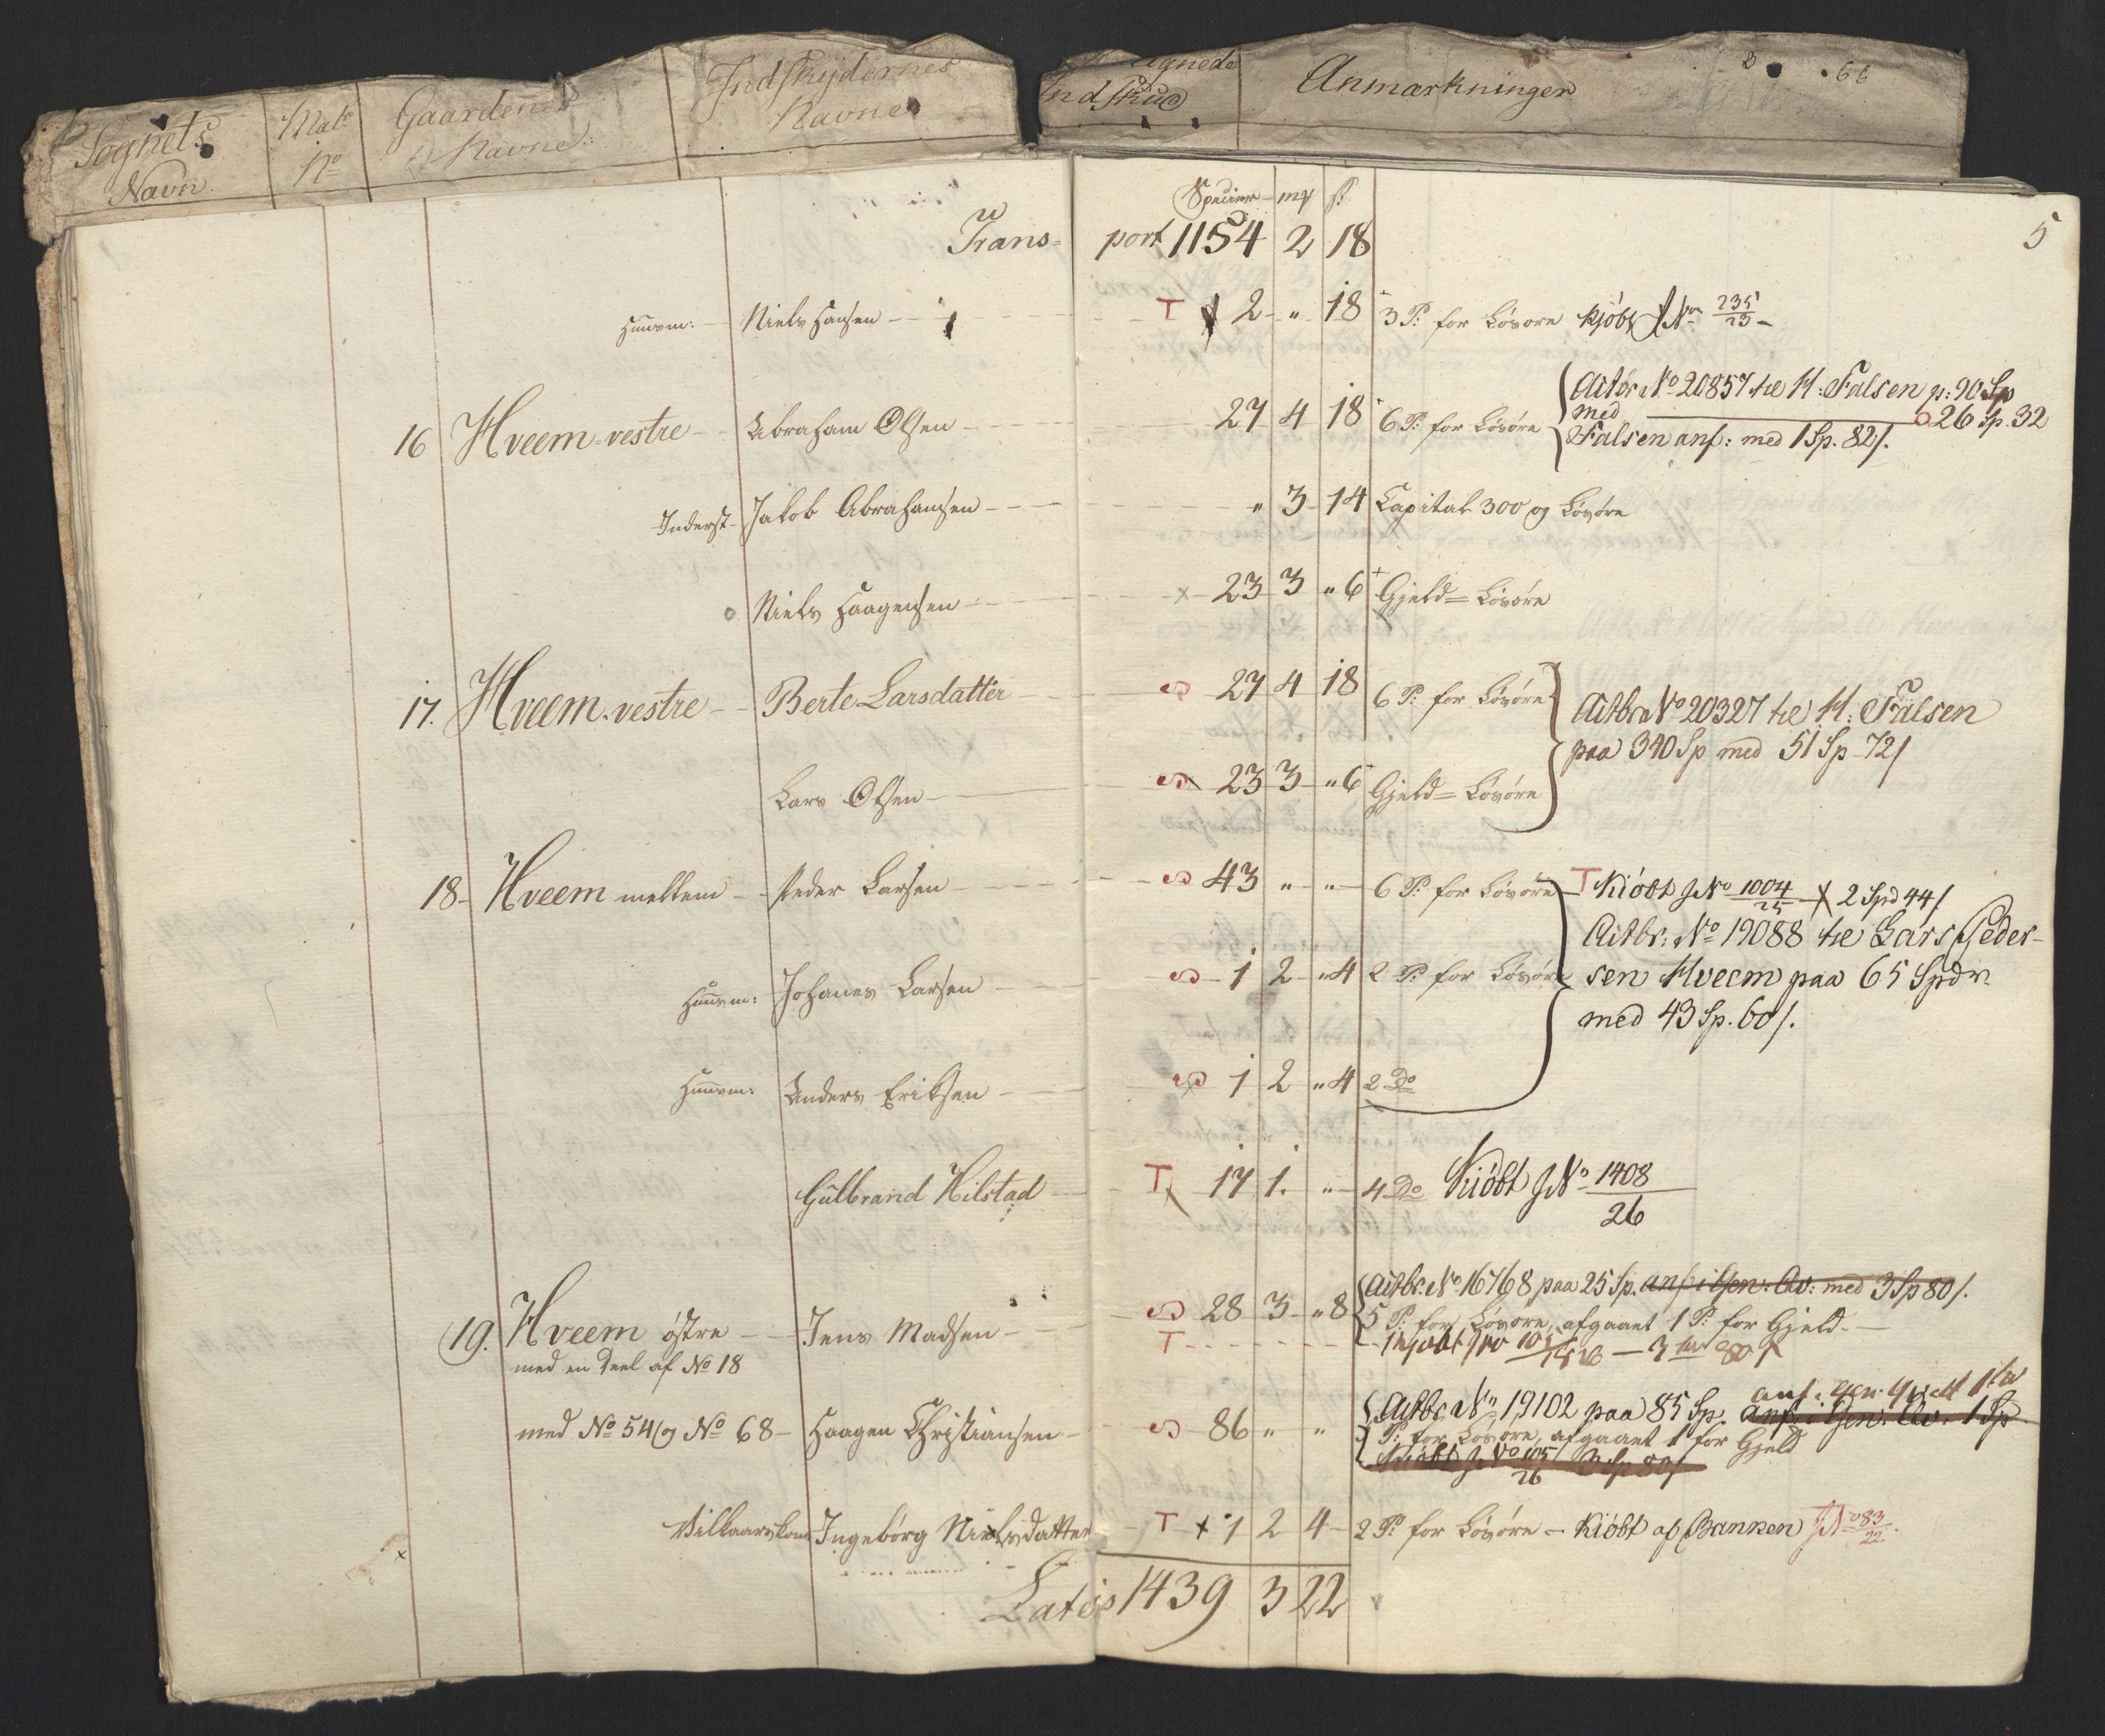 Sognets Navn | Matr No | Gaardenes Navne | Indskydernes Navne | Indskud | Anmærkninger
5
Specier | mz | s.
Transport 1154 | 2 | 18
Huusm: Niels Hansen T 2 " 18 3 P: for Løsøre kjøbt JNo 235/23
16 Hveem vestre Abraham Olsen 27 4 18 6 P: for Løsøre
Actbr No 20857 til H: Falsen p: 90 Sp
med 26 Sp. 32
Falsen anf: med 1 Sp. 82 s.
Inderst Jakob Abrahamsen " 3 14 Capital 300 og Løsøre
Niels Haagensen x 23 3 " 6 Gjeld = Løsøre
17. Hveem vestre Berte Larsdatter 27 4 18 6 P: for Løsøre
Actbr No 20327 til H: Falsen
paa 340 Sp med 51 Sp 72 s
Lars Olsen 23 3 " 6 Gjeld = Løsøre
18 Hveem mellem Peder Larsen 43 " " 6 P: for Løsøre
T Kiøbt JNo 1004/25 x 2 Spd 44 s
Actbr: No 19088 til Lars Peder-
Huusm: Johanes Larsen 1 2 " 4 2 P: for Løsøre
sen Hveem paa 65 Spdr.
med 43 Sp. 60 s.
Huusm: Anders Eriksen 1 2 " 4 2 Do
Gulbrand Kilstad T 17 1. " 4 Do Kiøbt JNo 1408/26
Actbr. No 16768 paa 25 Sp. anf: i Gen: Qv: med 3 Sp 80 s.
19. Hveem østre Jens Madsen 28 3 " 8 5 P: for Løsøre, afgaaet 1 P: for Gjeld.
med en Deel af No 18 T
Actbr No 19102 paa 85 Sp. anf: i Gen: Qv: 1 Sp
med No 54 og No 68 Haagen Christiansen 86 " " P: for Løsøre, afgaaet 1 for Gjeld
Kiøbt JNo 105/26 3 Sp 80 s
Vilkaarskone Ingebórg Nielsdatter T x 1 2 4 2 P: for Løsøre - Kiøbt af Banken JNo 83/22.
Latus 1439 3 22